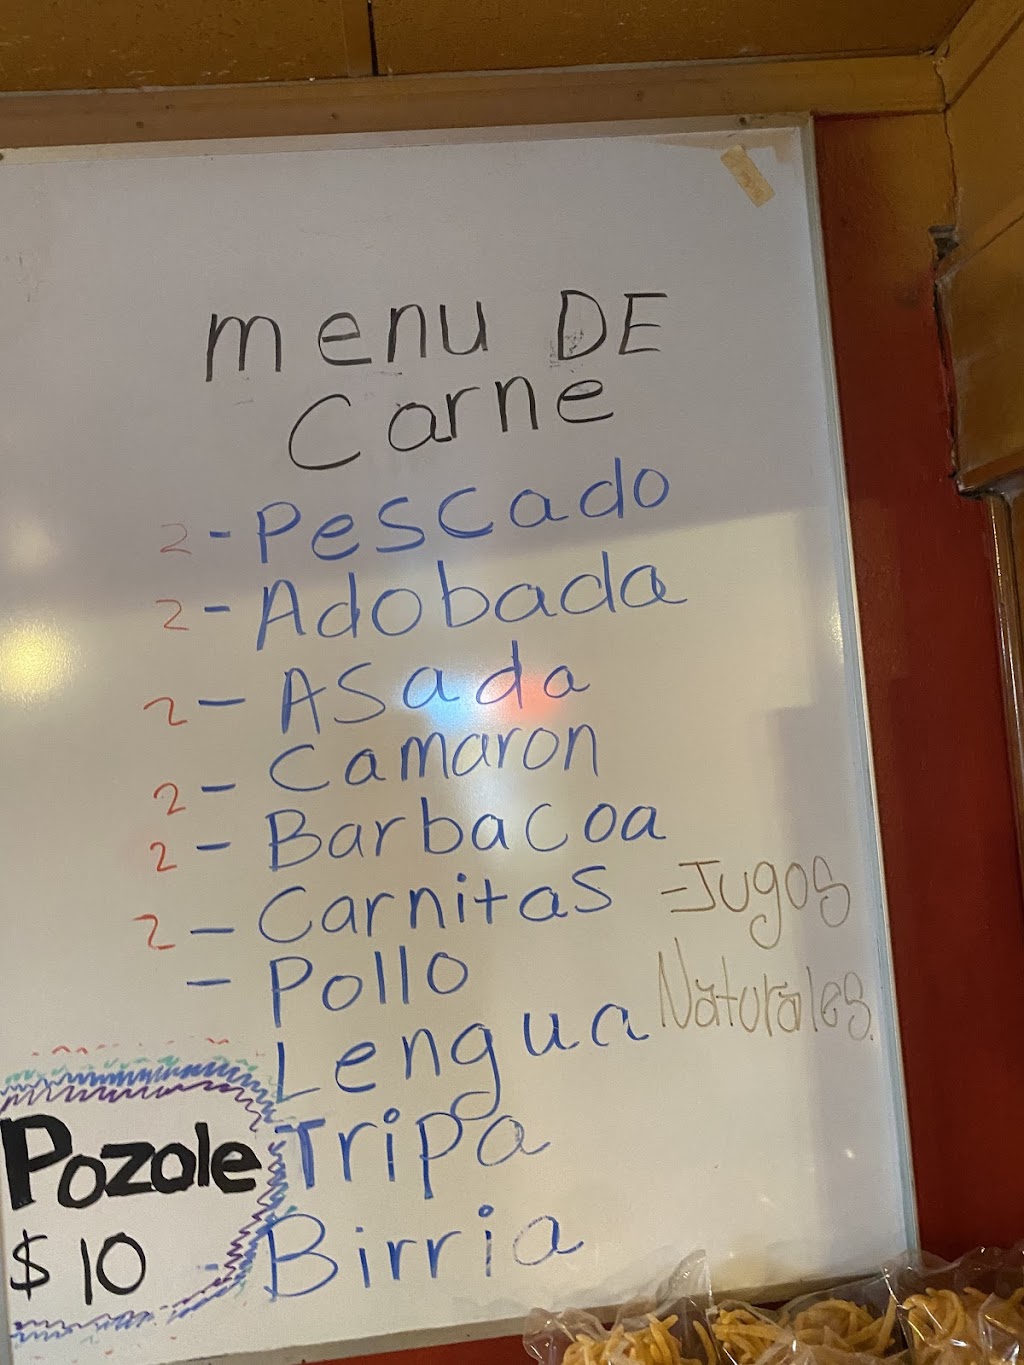 menu DE
Carne
2 - Pescado
2 - Adobada
2 - ASada
2 - Camaron
2 - Barbacoa
2 - CarnitaS
- Pollo
Lengua
Tripa
- Birria
- Jugos
Naturales.
Pozole
$10